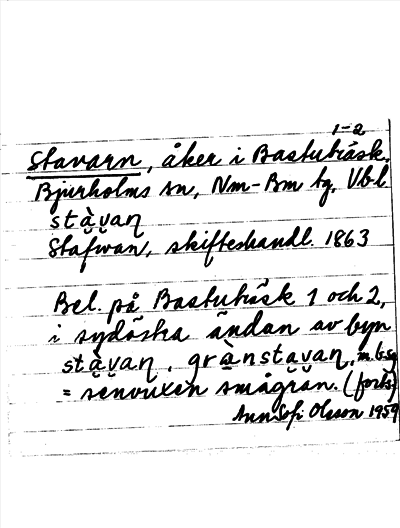 1-2
Stavarn, åker i Bastuträsk,
Bjurholms sn, Nm-Bm tg, Vbl
stà̯va̯ɳ
Stafwan, skifteshandl. 1863
Bel. på Bastuträsk 1 och 2,
i sydöstra ändan av byn
stà̯va̯ɳ, grànsta̯va̯ɳ, m.bsg
= senvuxen smågran. (forts)
Ann Sofi Olsson 1959